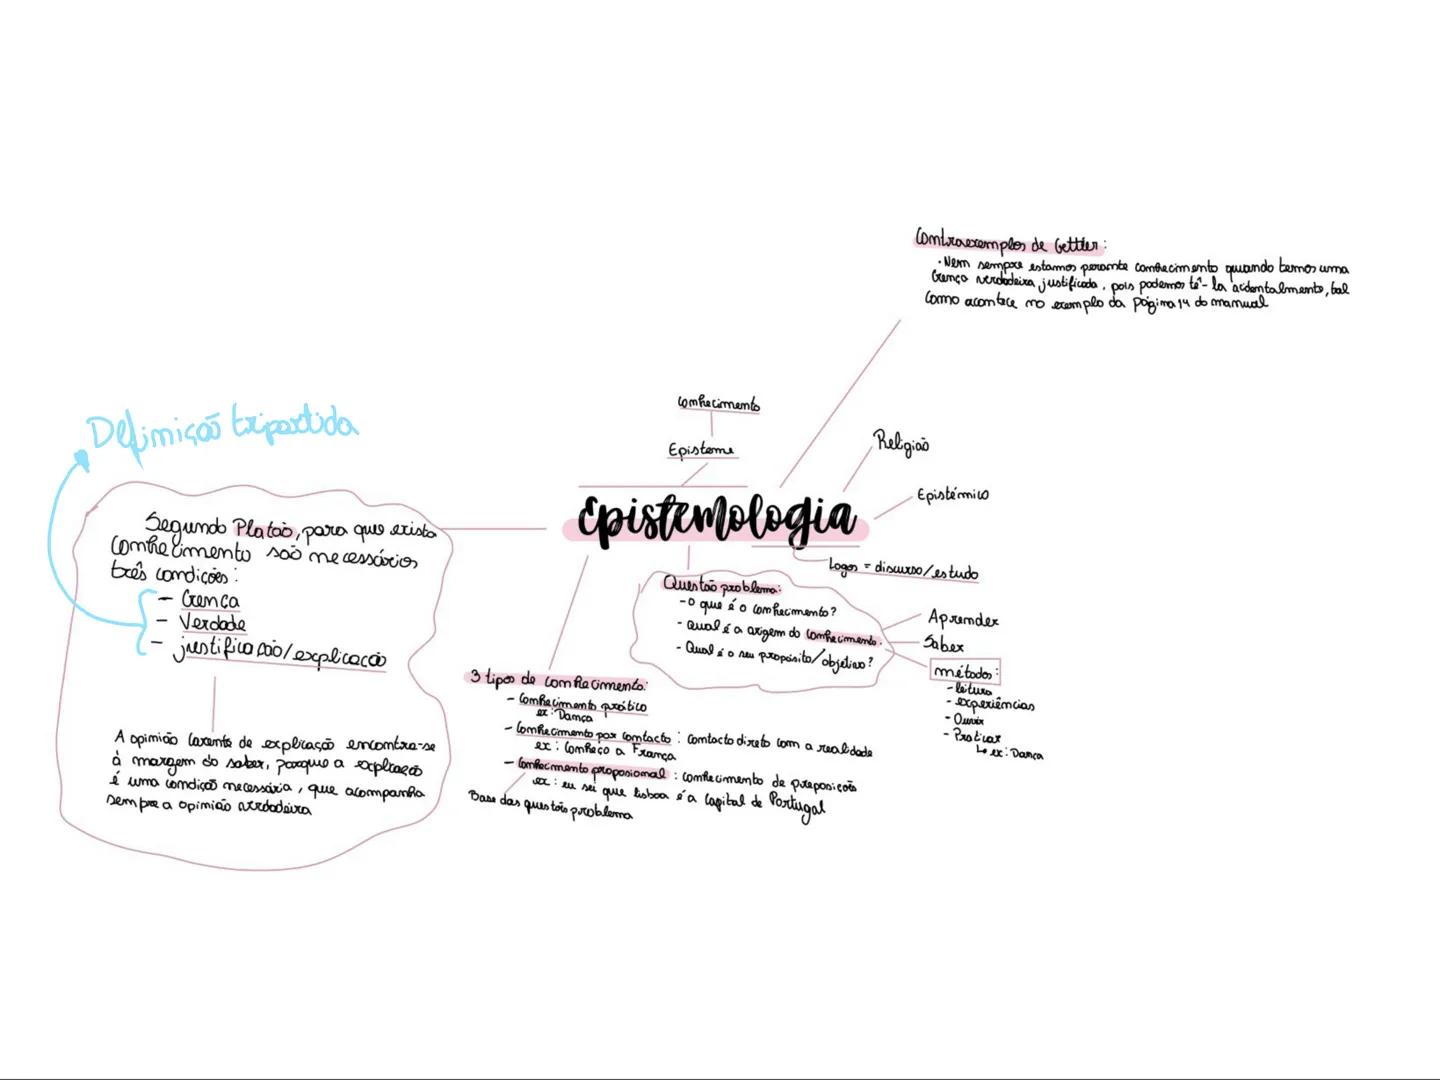 Contraexemplos de Gettier:
• Nem sempre estamos perante conhecimento quando temos uma
Crença verdadeira justificada, pois podemos tê-la acidentalmente, tal
como acontece no exemplo da página 14 do manual
conhecimento
Episteme
Religião
Epistémico
Epistemologia
Logos = discurso/estudo
Definição tripartida
Segundo Platão, para que exista
conhecimento são necessários
três condições:
- Crença
- Verdade
- justificação/explicação
A opinião carente de explicação encontra-se
à margem do saber, porque a explicação
é uma condição necessária, que acompanha
sempre a opinião verdadeira
Questão problema:
- O que é o conhecimento?
- qual é a origem do conhecimento.
- Qual é o seu propósito/objetivo?
Aprender
Saber
métodos:
- leitura
- experiências
- Ouvir
- Praticar
↳ ex: Dança
3 tipos de conhecimento:
- Conhecimento prático
ex: Dança
- Conhecimento por contacto: contacto direto com a realidade
ex: Conheço a França
- Conhecimento proposional: conhecimento de preposições
ex: eu sei que lisboa é a capital de Portugal
Base das questões problema